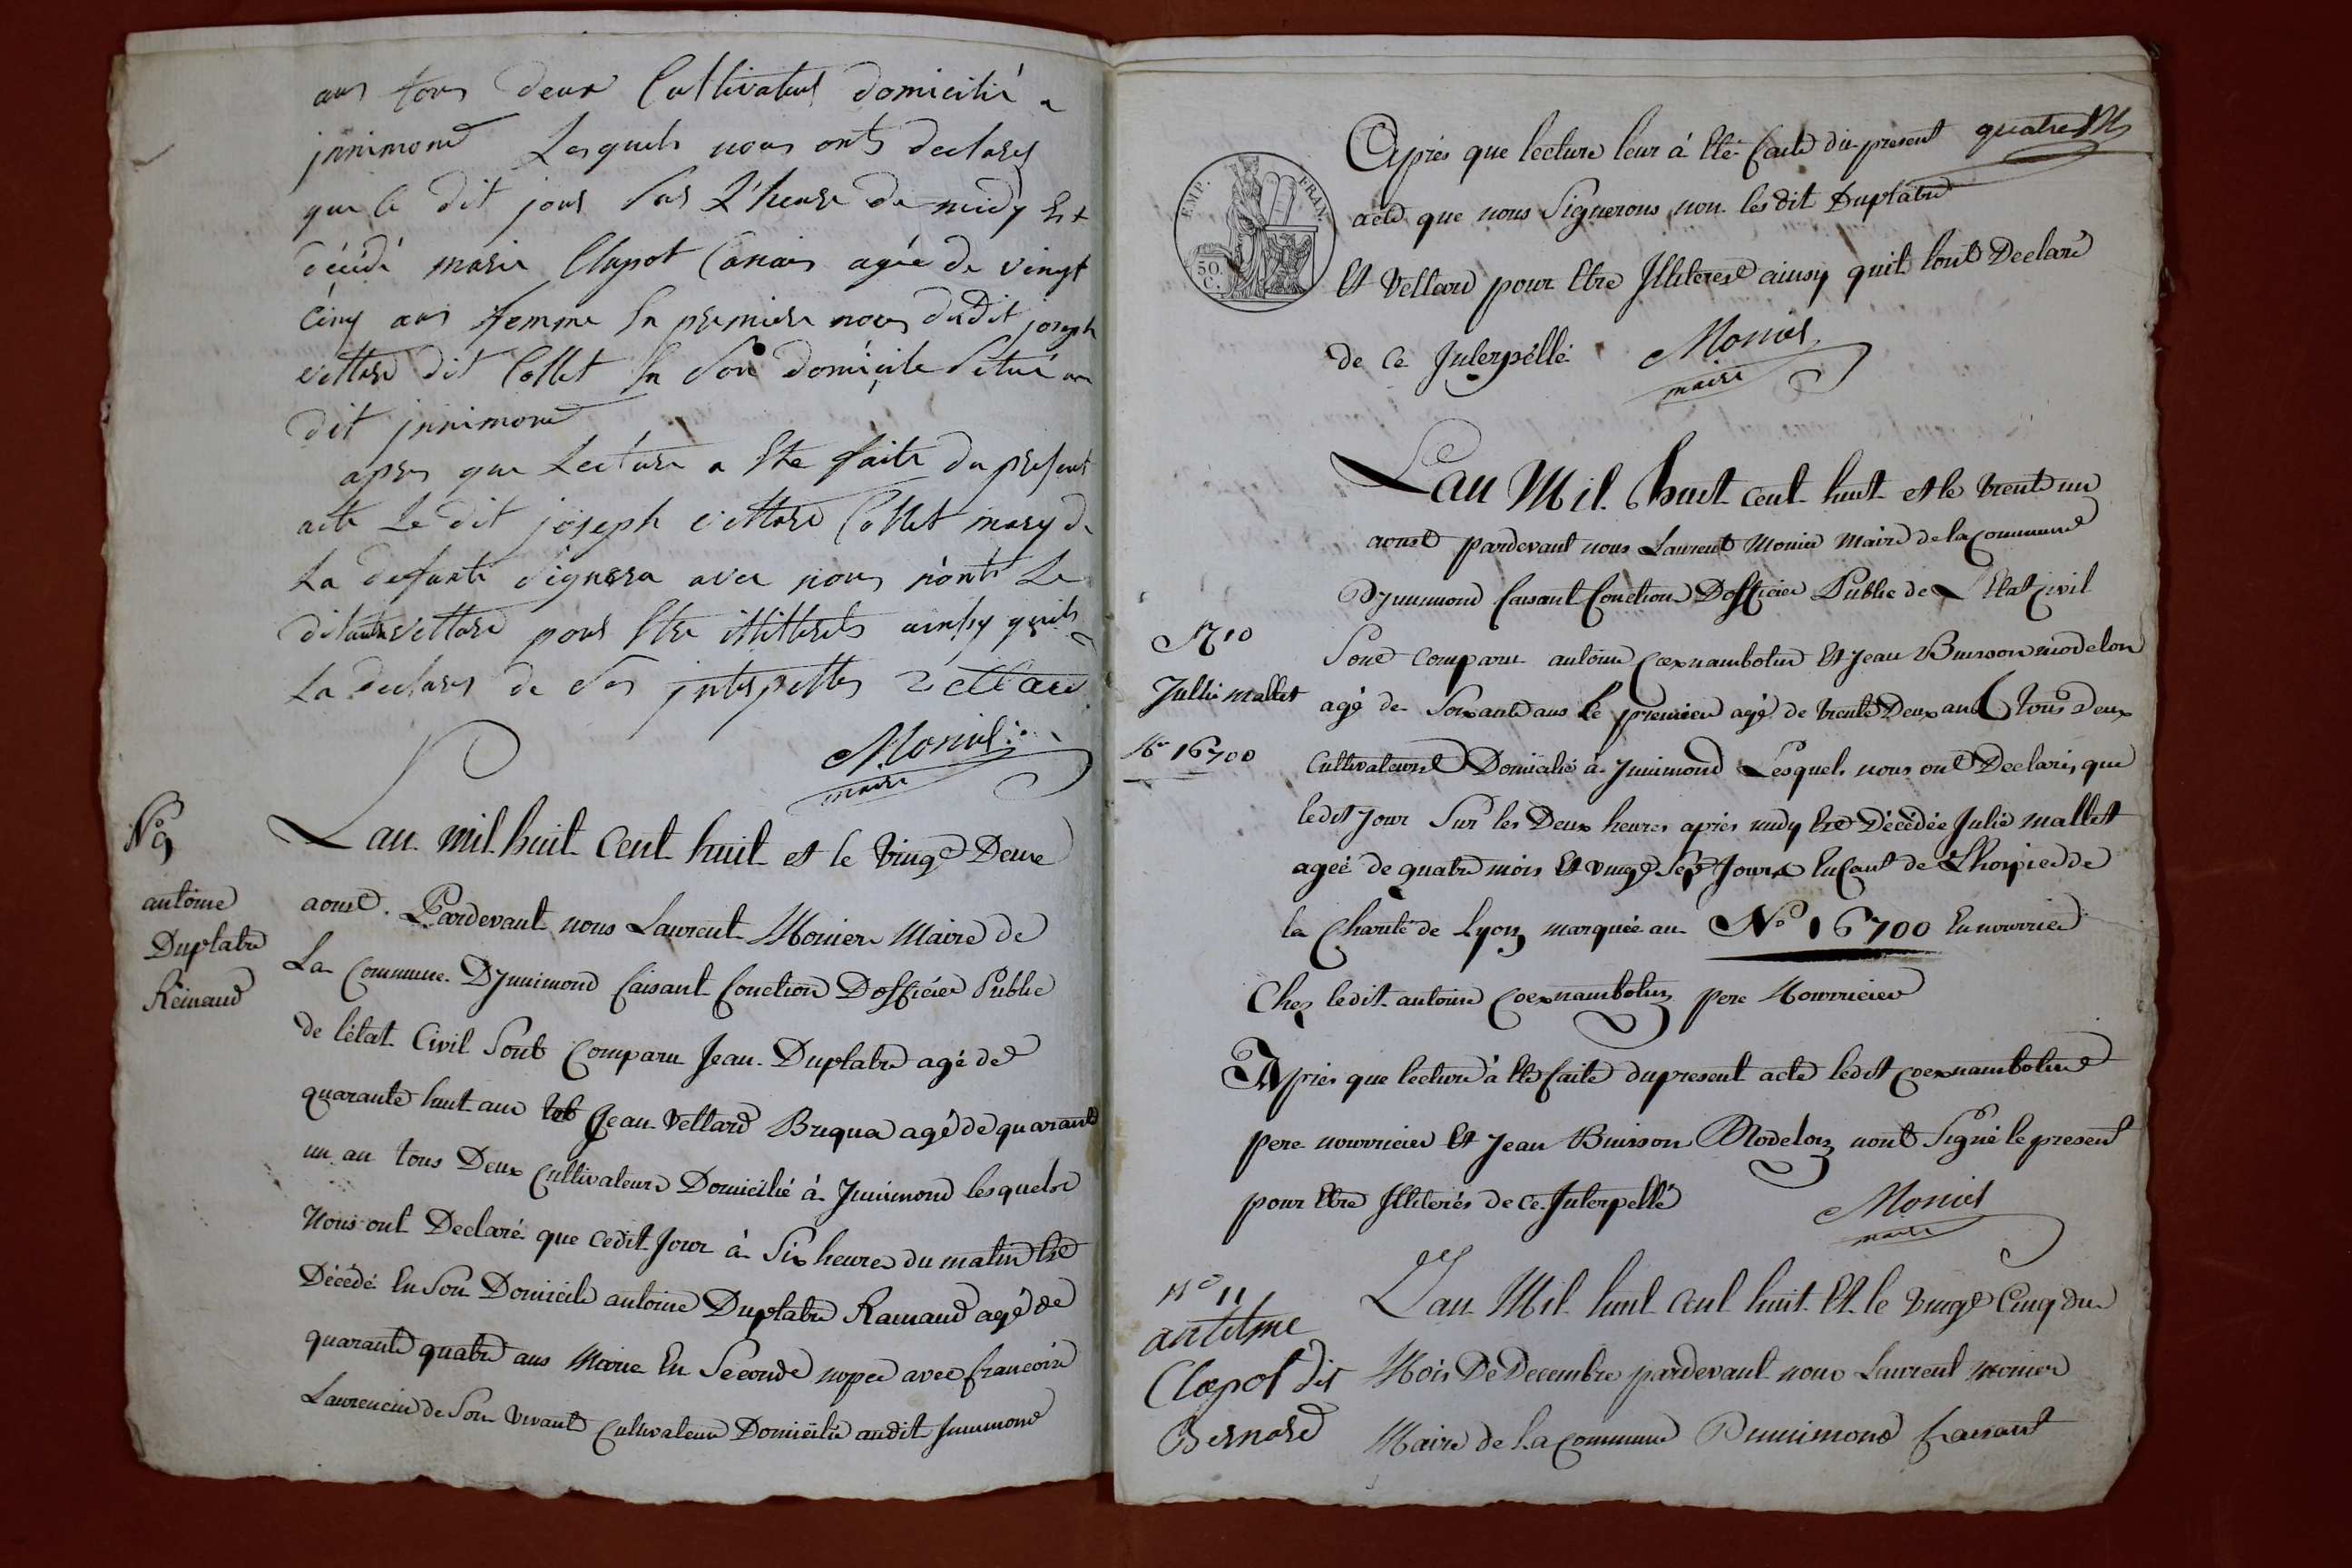 ans tous deux Cultivateurs domicilié a
jnnimond Lesquels nous onts declarés
que le dit jour sur L'heure de midy Est
décédé marie Clapot Canais agée de vingt
cinq ans femme En premiere noces dudit joseph
vettard dit Collet En Son domicile Situé au
dit jnnimond
apres que Lecture a Ete faite du present
acte Le dit joseph vettard Collet mary de
La defunte Signera avec nous nonts Le
dit autre vettard pour Etre illitterés ainsy quils
La declares de Ses jnterpelles vettard
Monier
maire
N.º 9
antoine
Duplatre
Reinaud
Lan mil huit cent huit et le vingt Deux
aoust. Pardevant nous Laurent Monier Maire de
La Commune D'Jnnimond faisant fonction Dofficier Public
de l'état Civil Sont Comparu Jean Duplatre agé de
quarante huit ans Jean Vettard Briqua agé de quarante
un an tous Deux Cultivateurs Domicilié à Jnnimond lesquels
Nous ont Declaré que cedit Jour à Six heures du matin Est
Décédé En Son Domicile antoine Duplatre Rainaud agé de
quarante quatre ans Marié En Seconde nopce avec francoise
Laurencin de Son Vivant Cultivateur Domicilié audit Jnnimond
quatre
EMP. FRAN.
50.
C.
Après que lecture leur à Eté faite du present
acte que nous Signerons non les dit Duplatre
Et Vettard pour Etre Jlliteres ainsy quil Sont Declaré
de Ce Jnterpéllé
Monier
maire
Lan Mil huit cent huit et le trente un
aoust pardevant nous Laurent Monier Maire de la Commune
D'Jnnimond faisant fonction D'officier Public de L'Etat Civil
Nº 10
Julie mallet
Nº 16700
Sont comparu antoine Coexnambolin Et Jean Buisson modelon
agé de Soixante ans le premier agé de trente Deux ans tous Deux
Cultivateurs Domicilié à Jnnimond Lesquel nous ont Declarés que
ledit Jour Sur les Deux heures après midy Est Décédée Julie mallet
ageé de quatre mois Et vingt Sept Jours Enfant de Lhospice de
la Charité de Lyon marquée au Nº 16700 En nourrice
Chez ledit antoine Coexnambolin pere Nourricier
Après que lecture à Eté faite du present acte ledit Coexnambolin
pere nourricier Et Jean Buisson Modelon nont Signé le present
pour Etre Jlliterés de Ce Jnterpellé
Monier
maire
Nº 11
antelme
Clapot dit
Bernard
Lan Mil huit Cent huit Et le vingt Cinq du
Mois De Decembre pardevant nous Laurent monier
Maire de La Commune D'jnnimond faisant